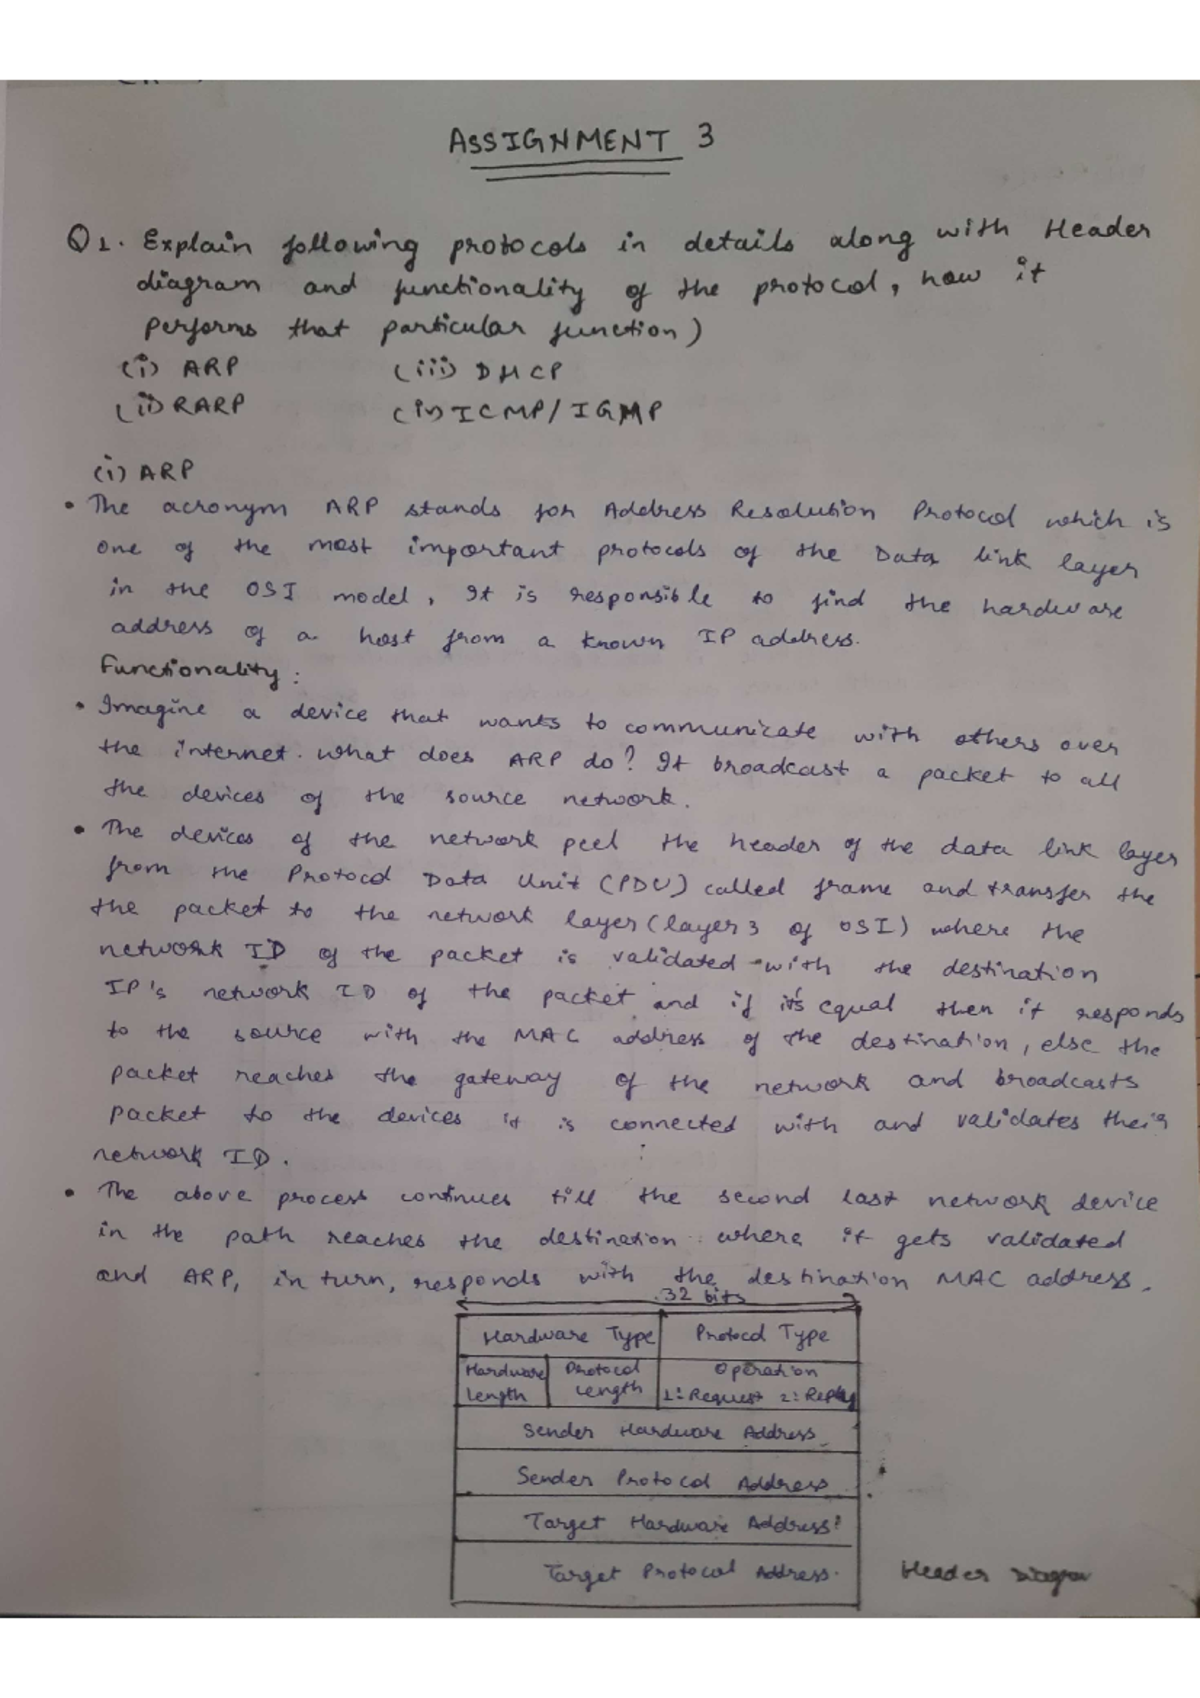 ASSIGNMENT 3
Q1. Explain following protocols in details along with Header
diagram and functionality of the protocol, how it
performs that particular function)
(i) ARP (iii) DHCP
(ii) RARP (iv) ICMP/IGMP
(i) ARP
• The acronym ARP stands for Address Resolution Protocol which is
one of the most important protocols of the Data link layer
in the OSI model, It is responsible to find the hardware
address of a host from a known IP address.
Functionality:
• Imagine a device that wants to communicate with others over
the internet. What does ARP do? It broadcast a packet to all
the devices of the source network.
• The devices of the network peel the header of the data link layer
from the Protocol Data Unit (PDU) called frame and transfer the
the packet to the network layer (layer 3 of OSI) where the
network ID of the packet is validated with the destination
IP's network ID of the packet and if it's equal then it responds
to the source with the MAC address of the destination, else the
packet reaches the gateway of the network and broadcasts
packet to the devices it is connected with and validates their
network ID.
• The above process continues till the second last network device
in the path reaches the destination where it gets validated
and ARP, in turn, responds with the destination MAC address.
32 bits
Hardware Type Protocol Type
Hardware Protocol Operation
length Length 1: Request 2: Reply
Sender Hardware Address
Sender Protocol Address
Target Hardware Address
Target Protocol Address.
Header